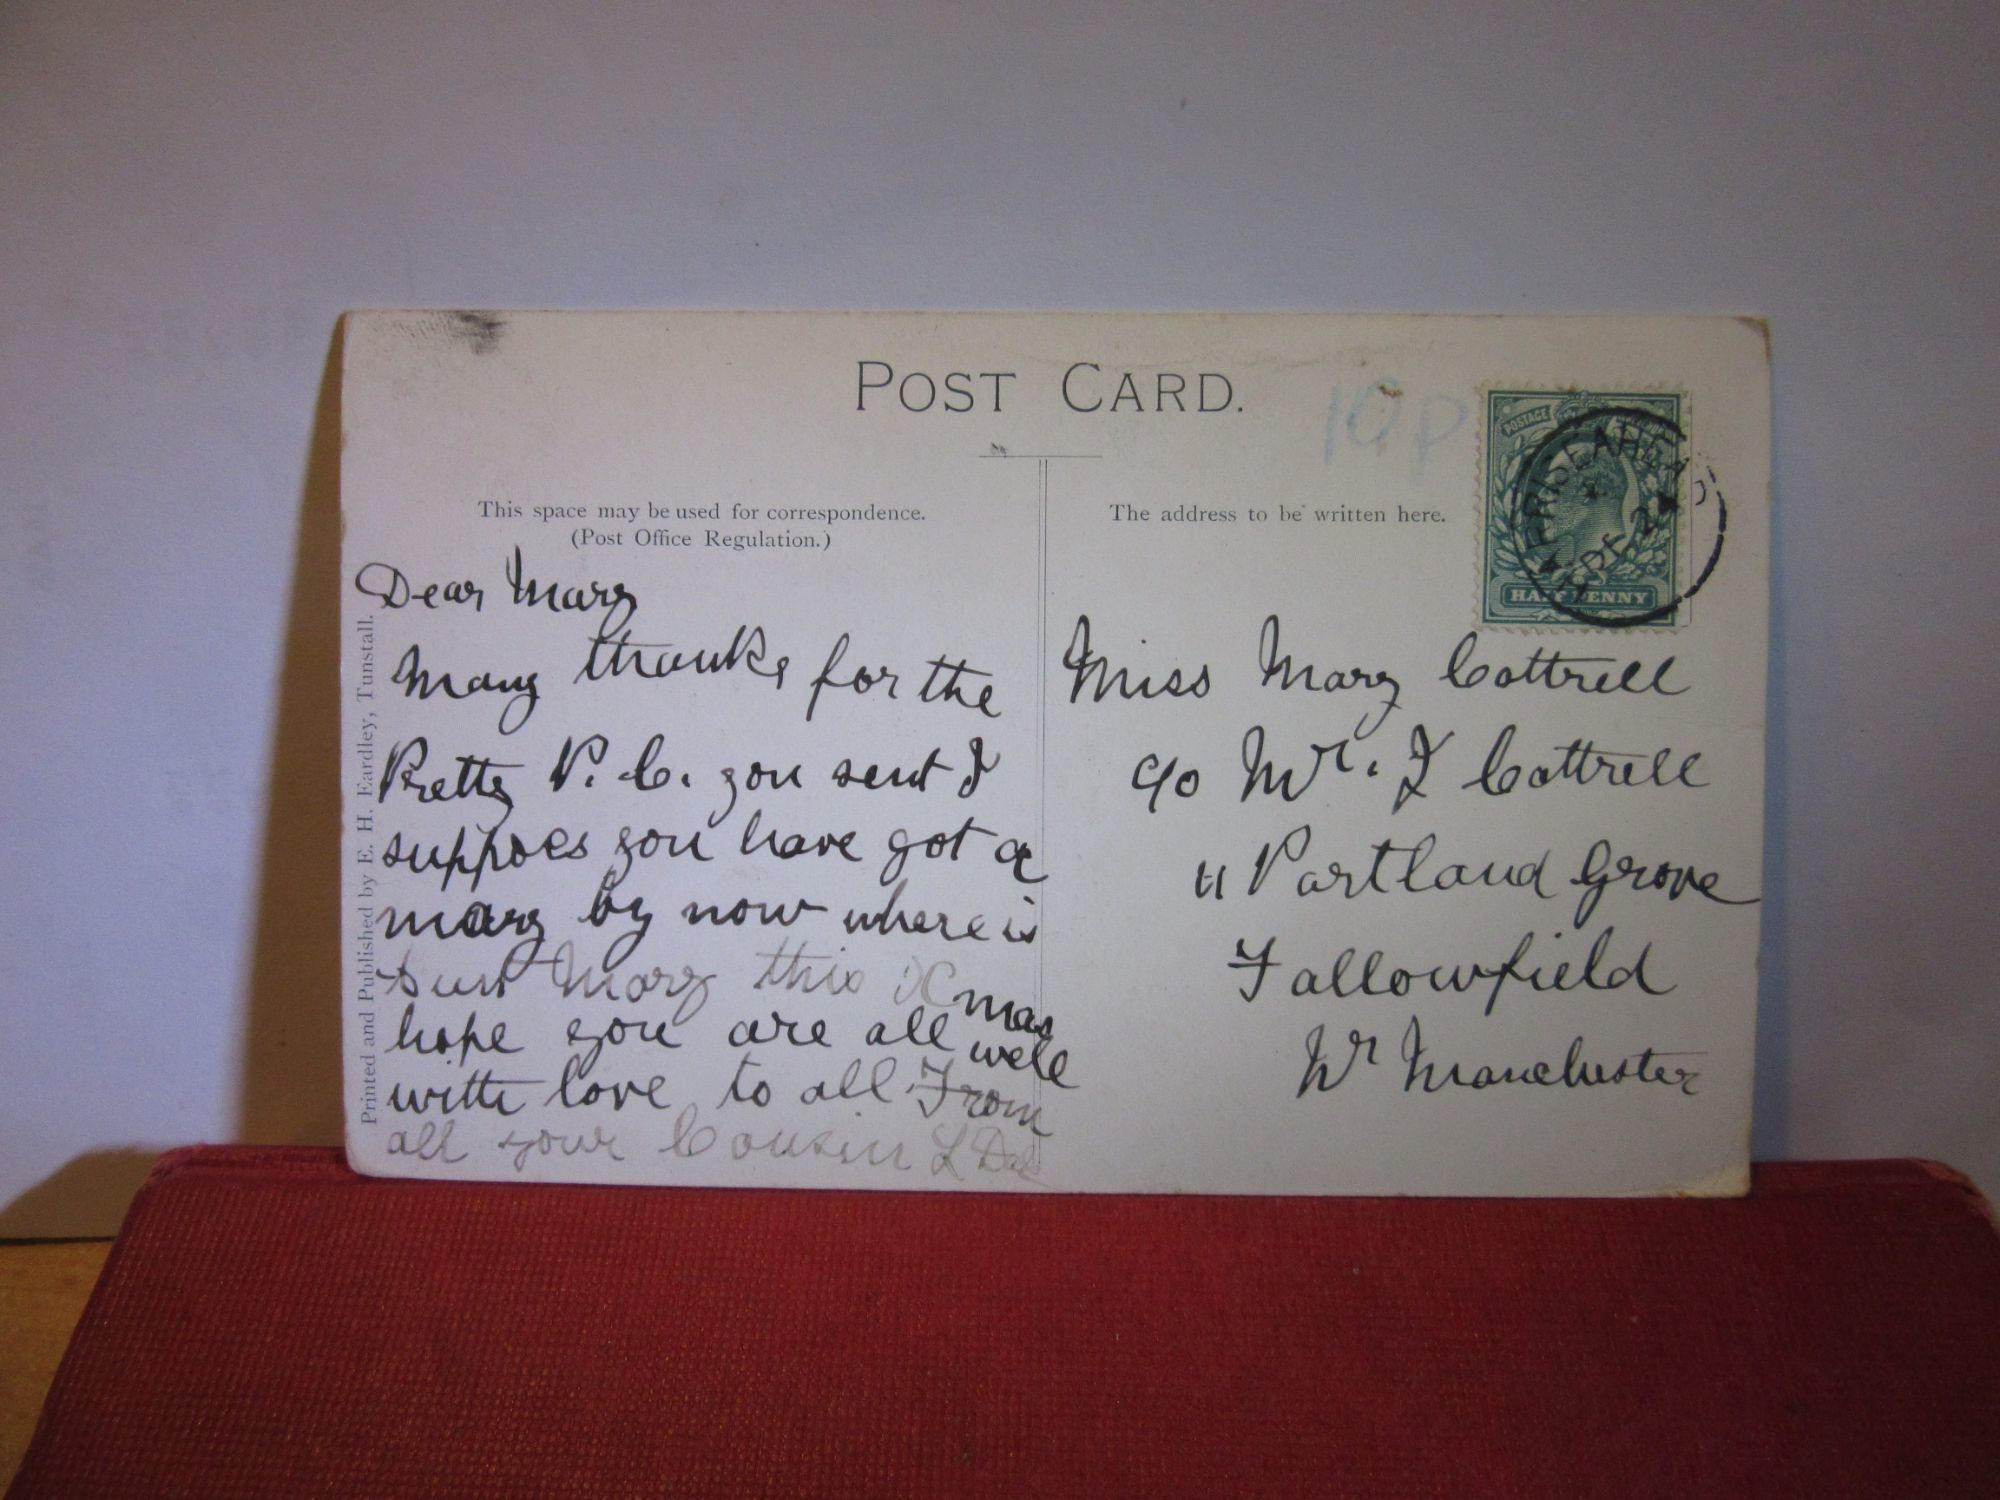 POST CARD.
10p
POSTAGE
HALF PENNY
HARRISEAHEAD
DE 24
This space may be used for correspondence.
(Post Office Regulation.)
The address to be written here.
Printed and Published by E. H. Eardley, Tunstall.
Dear Mary
Many thanks for the
Pretty P. C. you sent I
suppoes you have got a
many by now where is
Aunt Mary this Xmas
hope you are all well
with love to all From
all your Cousin L
Miss Mary Cottrell
c/o Mr. J Cottrell
11 Portland Grove
Fallowfield
Nr Manchester